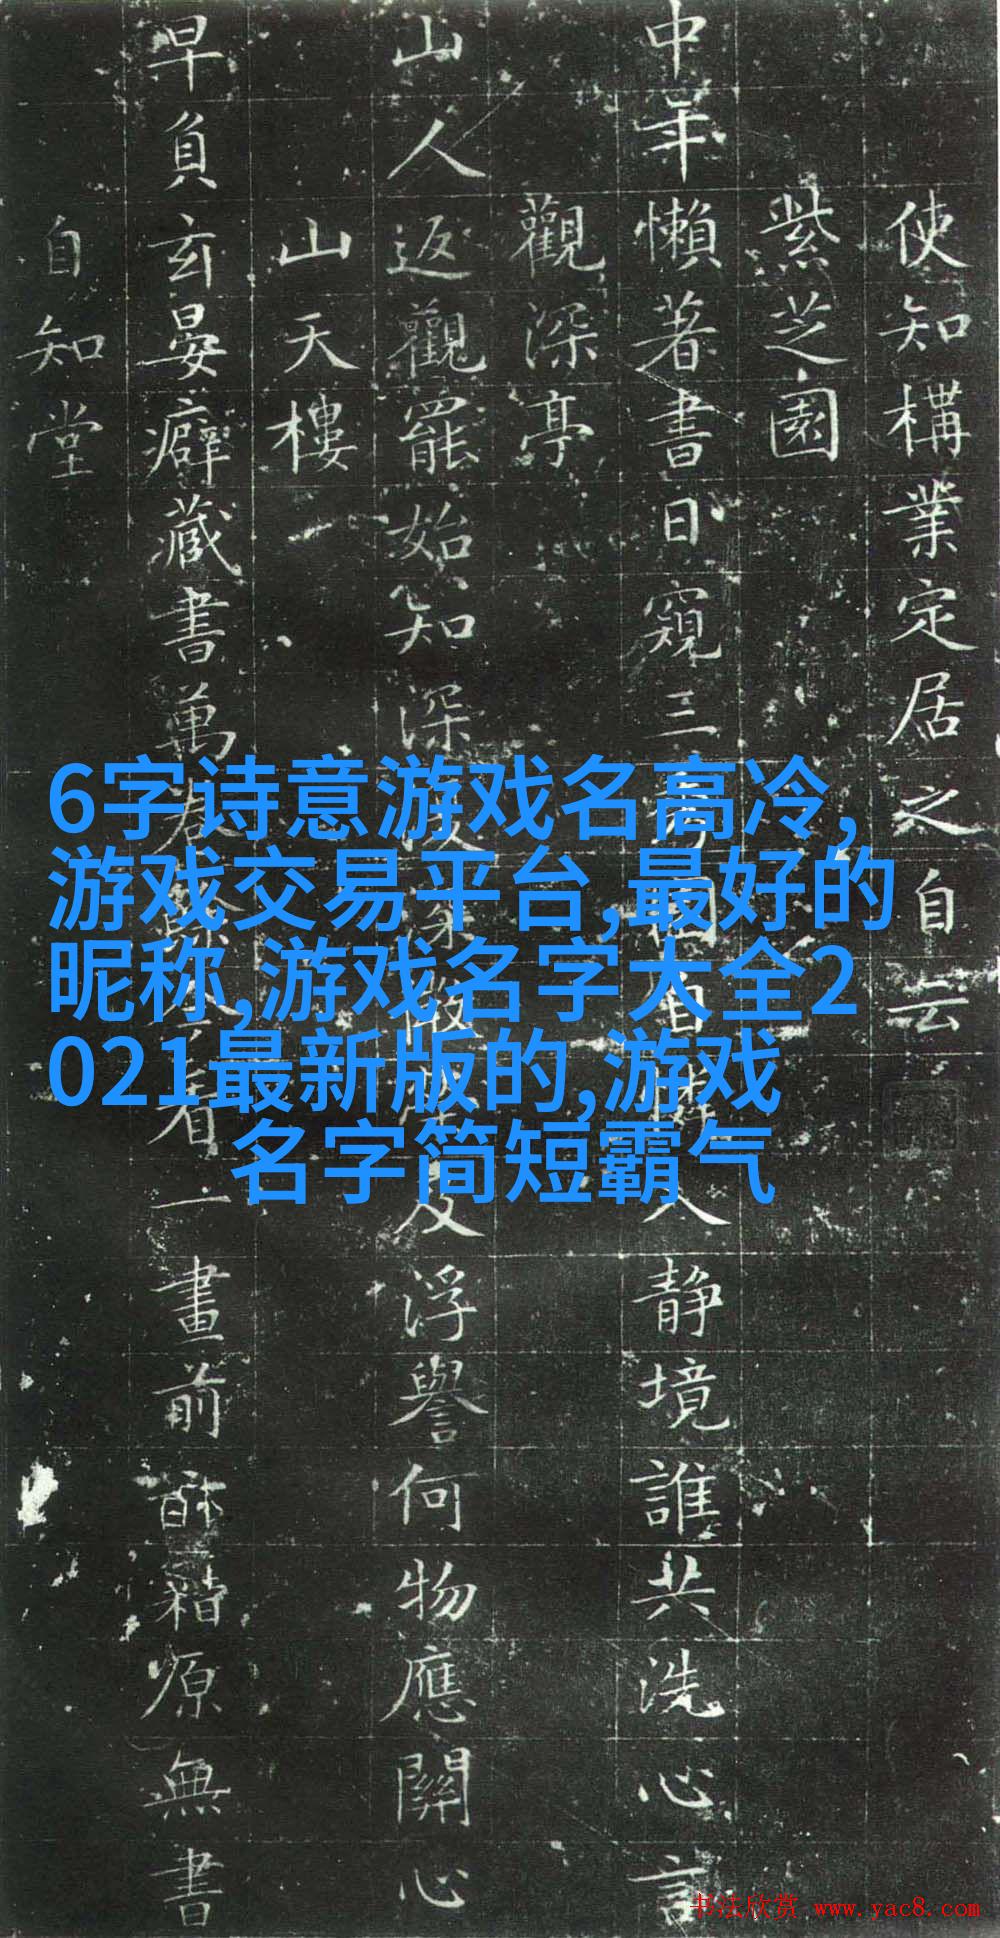 使知構業定居之自云
紫芝園
中年懶著書日窺三自人靜境誰共洗心言
觀深亭
山人返觀罷始知深及浮譽何物應關心
山天樓
早負玄晏癖藏書萬看一畫前籍原無書
自知堂
6字诗意游戏名高冷,
游戏交易平台,最好的
昵称,游戏名字大全2
021最新版的,游戏
名字简短霸气
书法欣赏 www.yac8.com